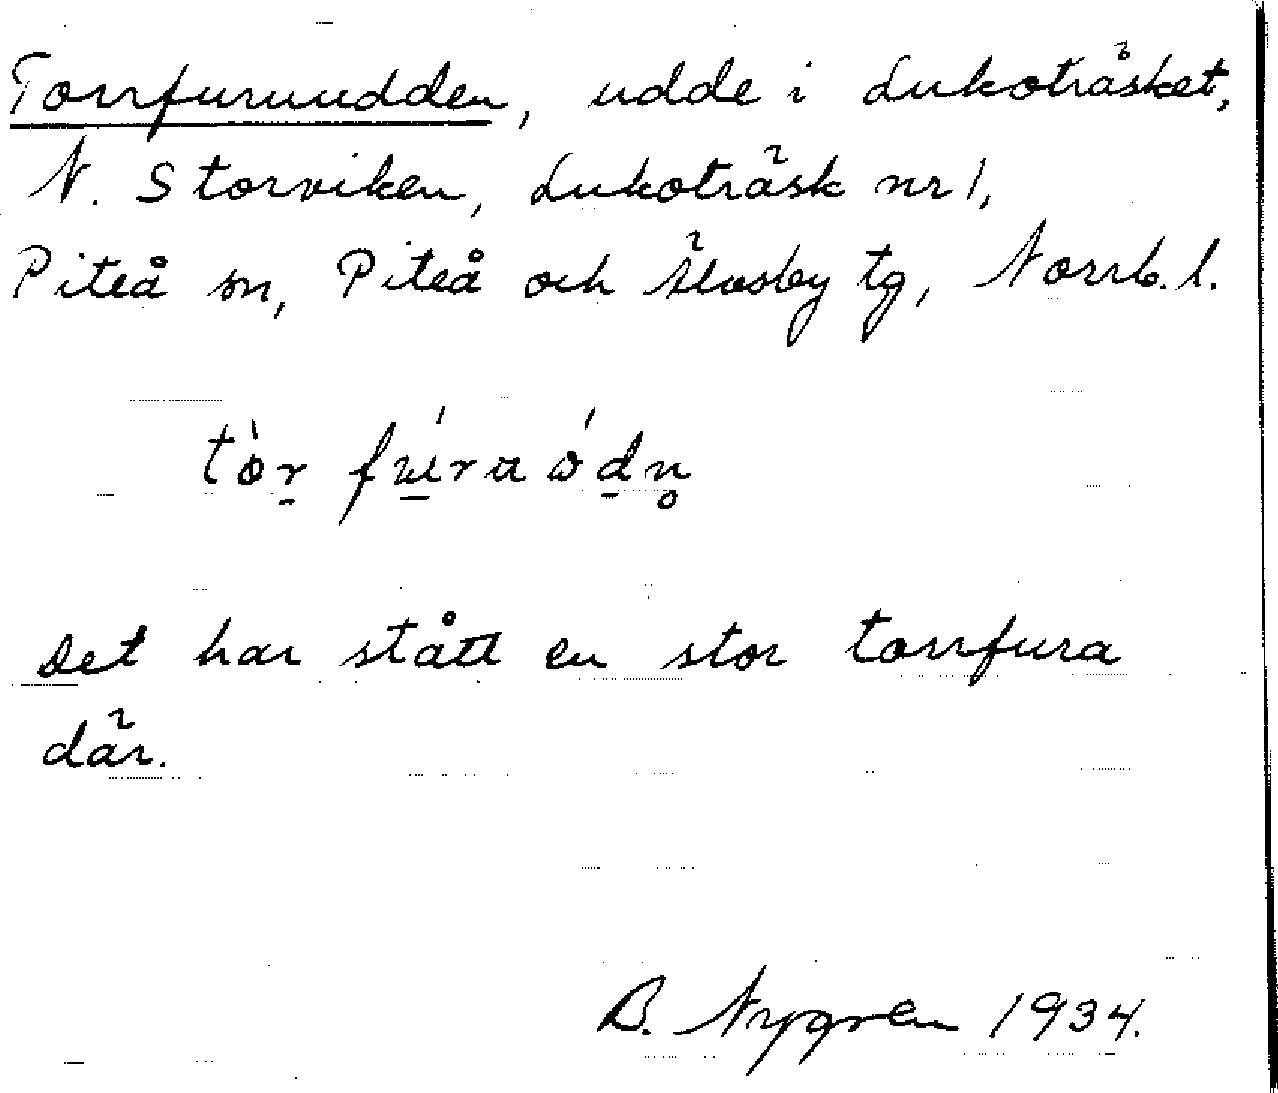 Torrfuruudden, udde i Lukoträsket,
N. Storviken, Lukoträsk nr 1,
Piteå sn, Piteå och Älvsby tg, Norrb. l.
tòr fúraódn̥
Det har stått en stor torrfura
där.
B. Nygren 1934.